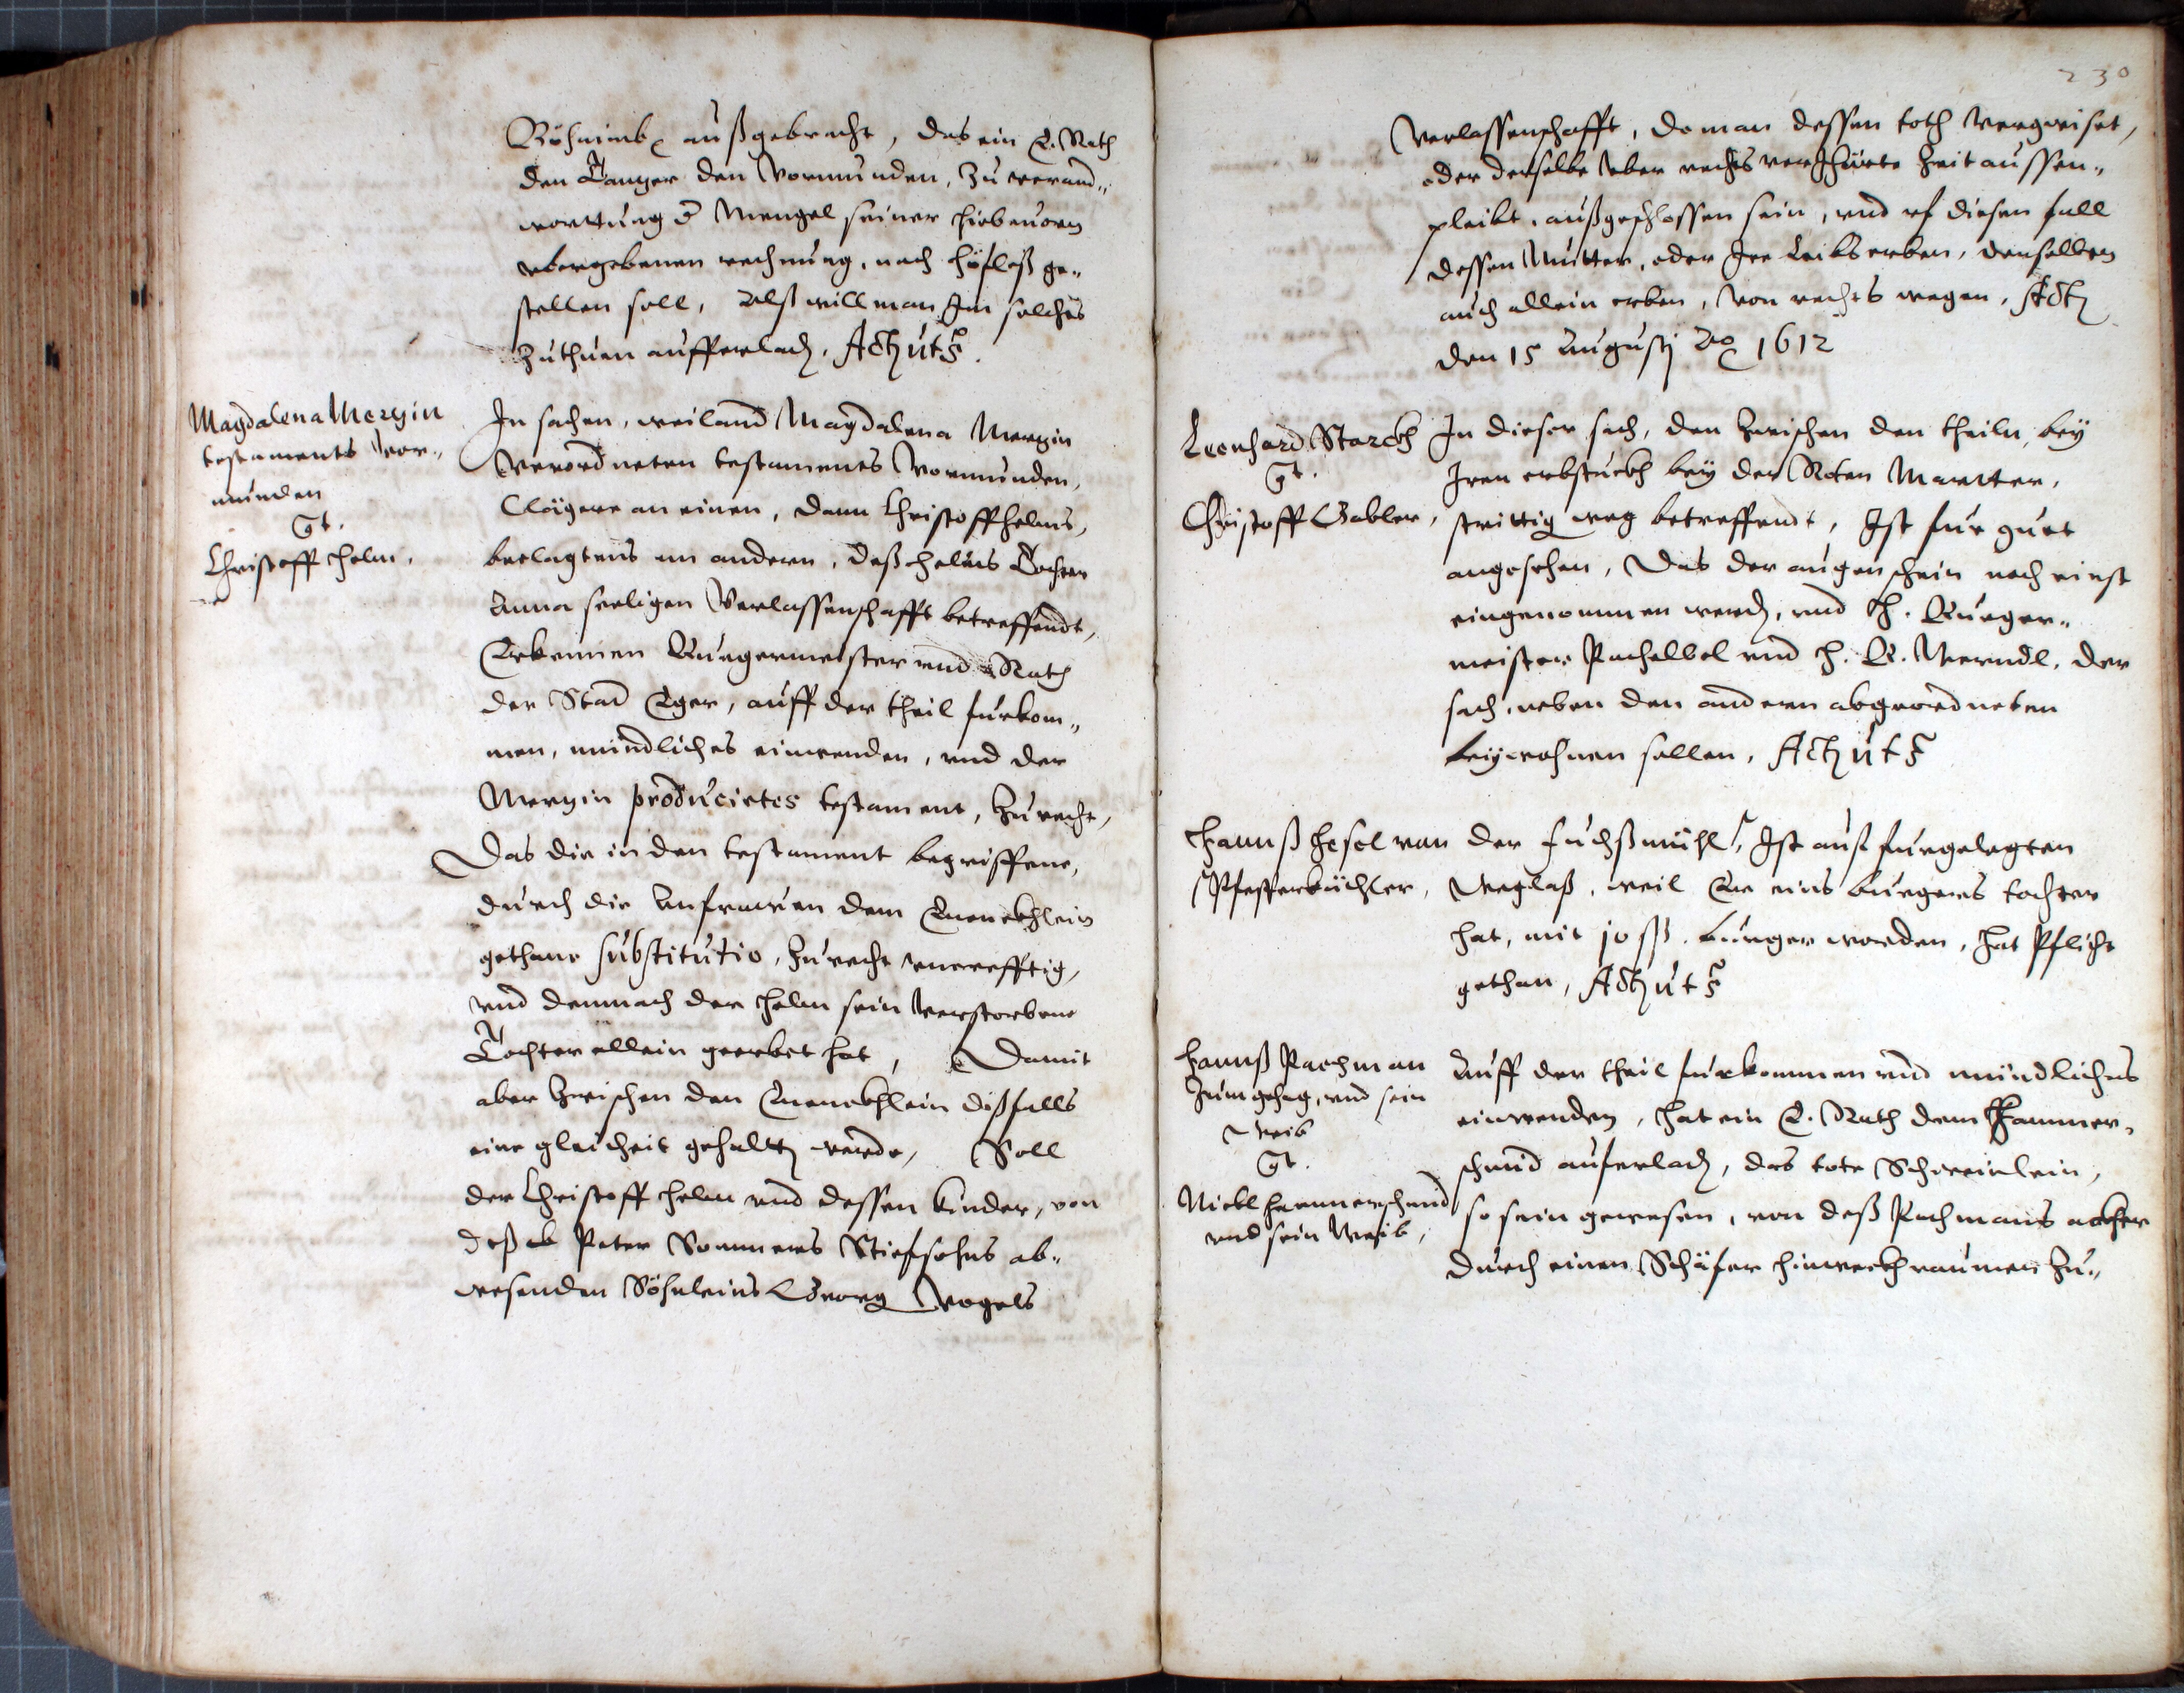 Böhaimbs außgebracht, das ein E. Rath
den Langer den Vormunden, zu verand„
worttung d Mengel seiner hiebeuorn
vbergebenen rechnung, nach hoflaß ge„
stellen soll, Alß will man Jm solches
zuthuen aufferlad, Act ut s.
Magdalena Mergin
testaments Vor„
munden
ct.
Christoff Helm.
In sachen, weiland Magdalena Mergin
Verordneten testaments Vormunden,
Clägere an einen, dann Christoff Helms,
beclagtens am andern, deß Helms Tochter
Anna seeligen Verlassenschafft betreffendt,
Erkennen Burgermeister vnd Rath
der Stad Eger, auff der theil furkom„
men, mündliches einwenden, vnd der
Mergin producirtes testament, zu recht,
Das die in den testament begriffene,
durch die Anfrawen dem Enencklein
gethane substitutio, zu recht vncrefftig,
vnd demnach der Helm sein Verstorbene
Tochter allein geerbet hat, Damit
aber zwischen den Enencklein dißfalls
eine gleicheit gehalten werde, Soll
der Christoff Helm vnd dessen kinder, von
deß Peter Sommers Stiefsohns ab„
wesenden Söhnleins Georg Vogels
230
Verlassenschafft, do man dessen toth Vergwiset,
oder derselbe vber rechts verJharte Zeit aussen„
pleibt, außgeschlossen sein, vnd vf diesen fall
dessen Mutter, oder Jre Leibs erben, denselben
auch allein erben, Von rechts wegen, Act
den 15 Augusti Ao 1612
Leonhard Starckh
ct.
Christoff Gabler,
In dieser sach, den zwischen den theiln, bey
Jren erbstuckh bey der Roten Martter,
strittig weg betreffendt, Ist fur guet
angesehen, Das der augenschein noch einst
eingenommen werd, vnd H. Burger„
meister Pachelbel vnd H. B. Werndl, der
sach, neben den andern abgeordneten
beywohnen sollen, Act ut s
Hannß Hesel von
Pfefferküchler,
der fuchßmühl, Ist auf furgelegten
Weglaß, weil Er eins burgers tochter
hat, mit jo ß. burger worden, hat Pflicht
gethan, Act ut s
Hannß Pachman
Zum gehag, vnd sein
Weib
ct.
Nickl Hammerschmid
vnd sein Weib,
Auff der theil furkommen vnd mündliches
einwenden, hat ein E. Rath dem Hammer„
schmid auferlad, das tote Schweinlein,
so sein gewesen, von deß Pachmans acker
durch einen Schäfer hinweckh raumen zu„